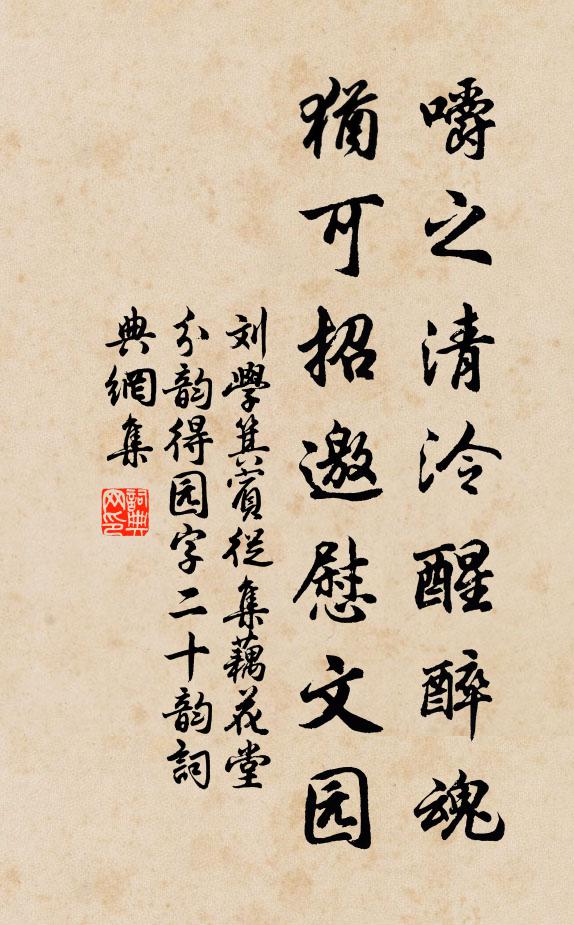 嚼之清泠醒醉魂
犹可招邀慰文园
刘學箕賓從集藕花堂
分韵得园字二十韵詞
典網集
詞典网印